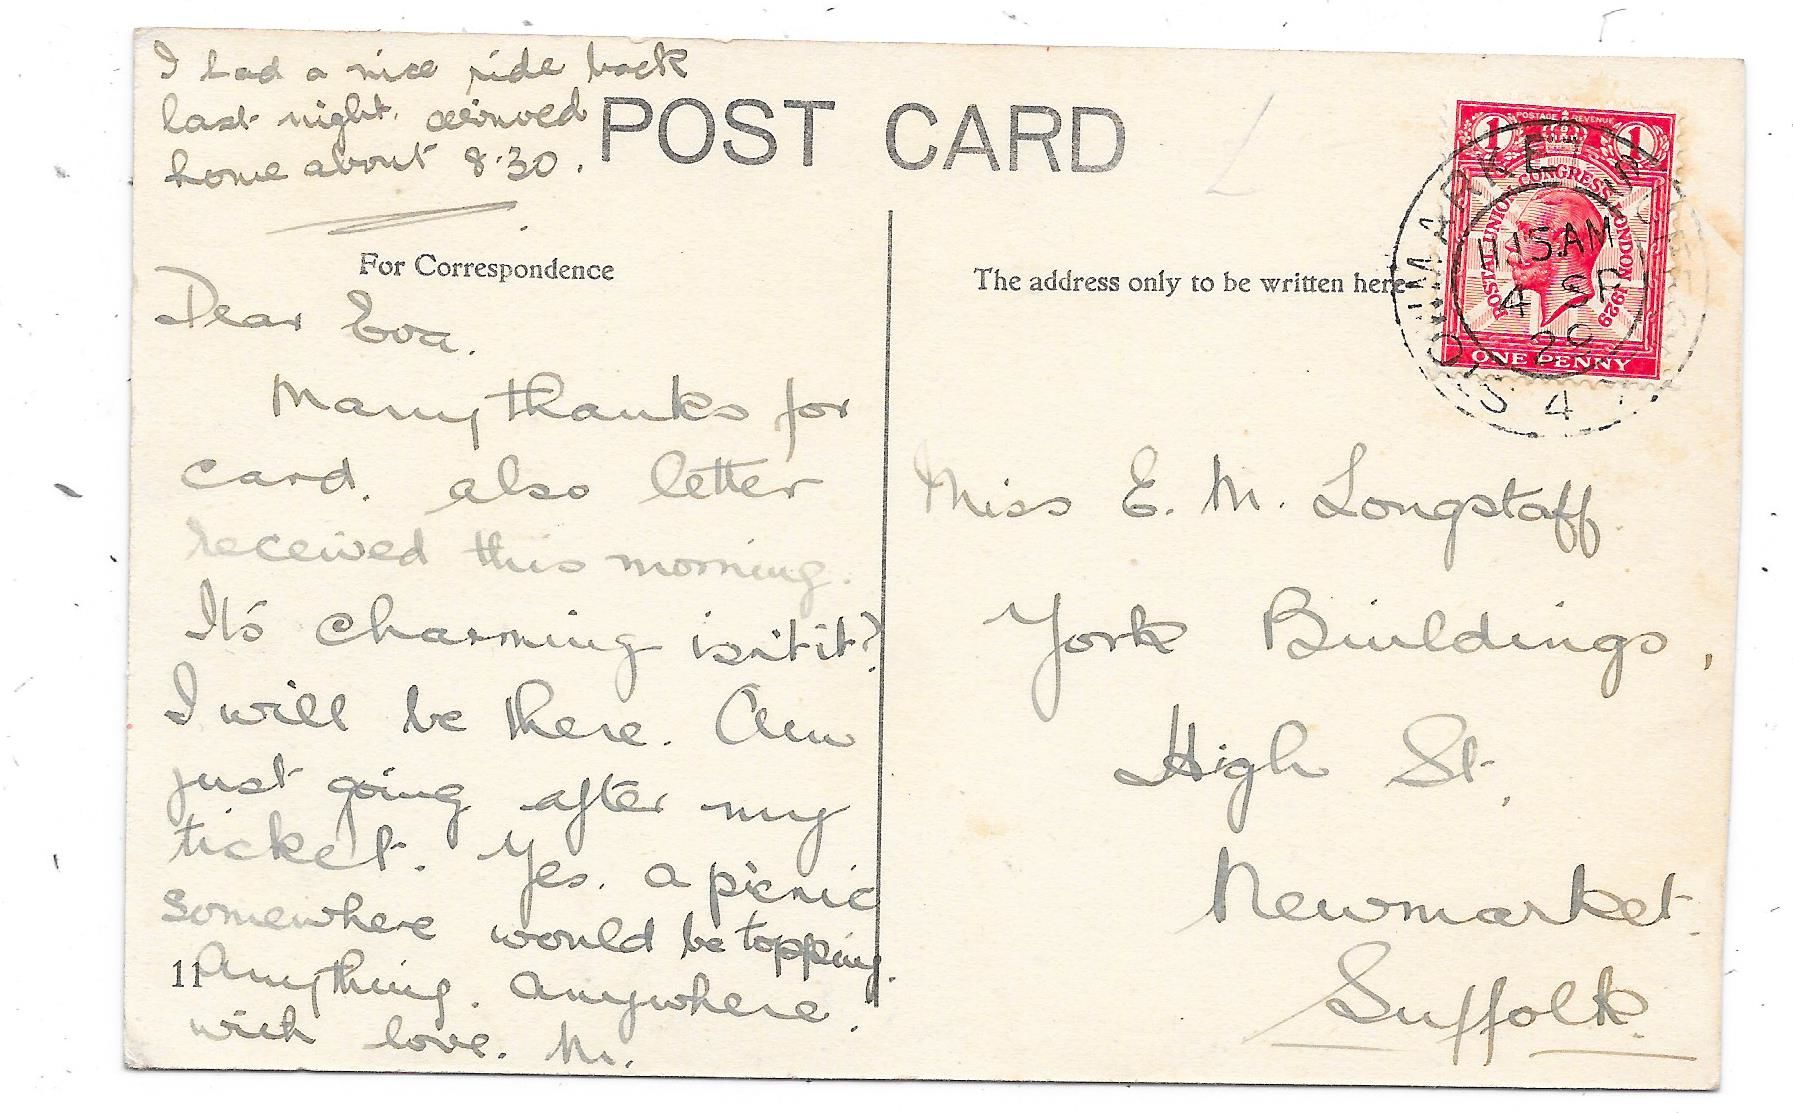 I had a nice ride back
last night. arrived
home about 8.30.
POST CARD
For Correspondence
Dear Eva.
Many thanks for
card. also letter
received this morning.
It's charming isn't it?
I will be there. Am
just going after my
ticket. Yes. a picnic
somewhere would be topping.
11
Anything. Anywhere.
with love. M.
The address only to be written here
POSTAGE REVENUE
1 1
POSTAL UNION CONGRESS LONDON 1929
ONE PENNY
STOWMARKET
11.15 AM
4 SP
Miss E. M. Longstaff.
York Buildings,
High St,
Newmarket.
Suffolk.